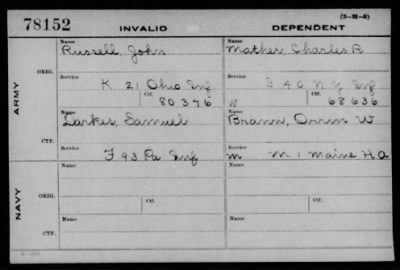 (3-28-3)
78152 INVALID DEPENDENT
Name Name
Russell, John Mather, Charles R
ARMY
ORIG. Service Service
K 21 Ohio Inf 40 N Y Inf
Ctf. Ctf.
80,376 W 68636
Name Name
Larkes, Samuel Brann, Orrin W
CTF. Service Service
F 93 Pa Inf m M 1 Maine H.A.
NAVY
Name Name
ORIG. Ctf. Ctf.
Name Name
CTF.